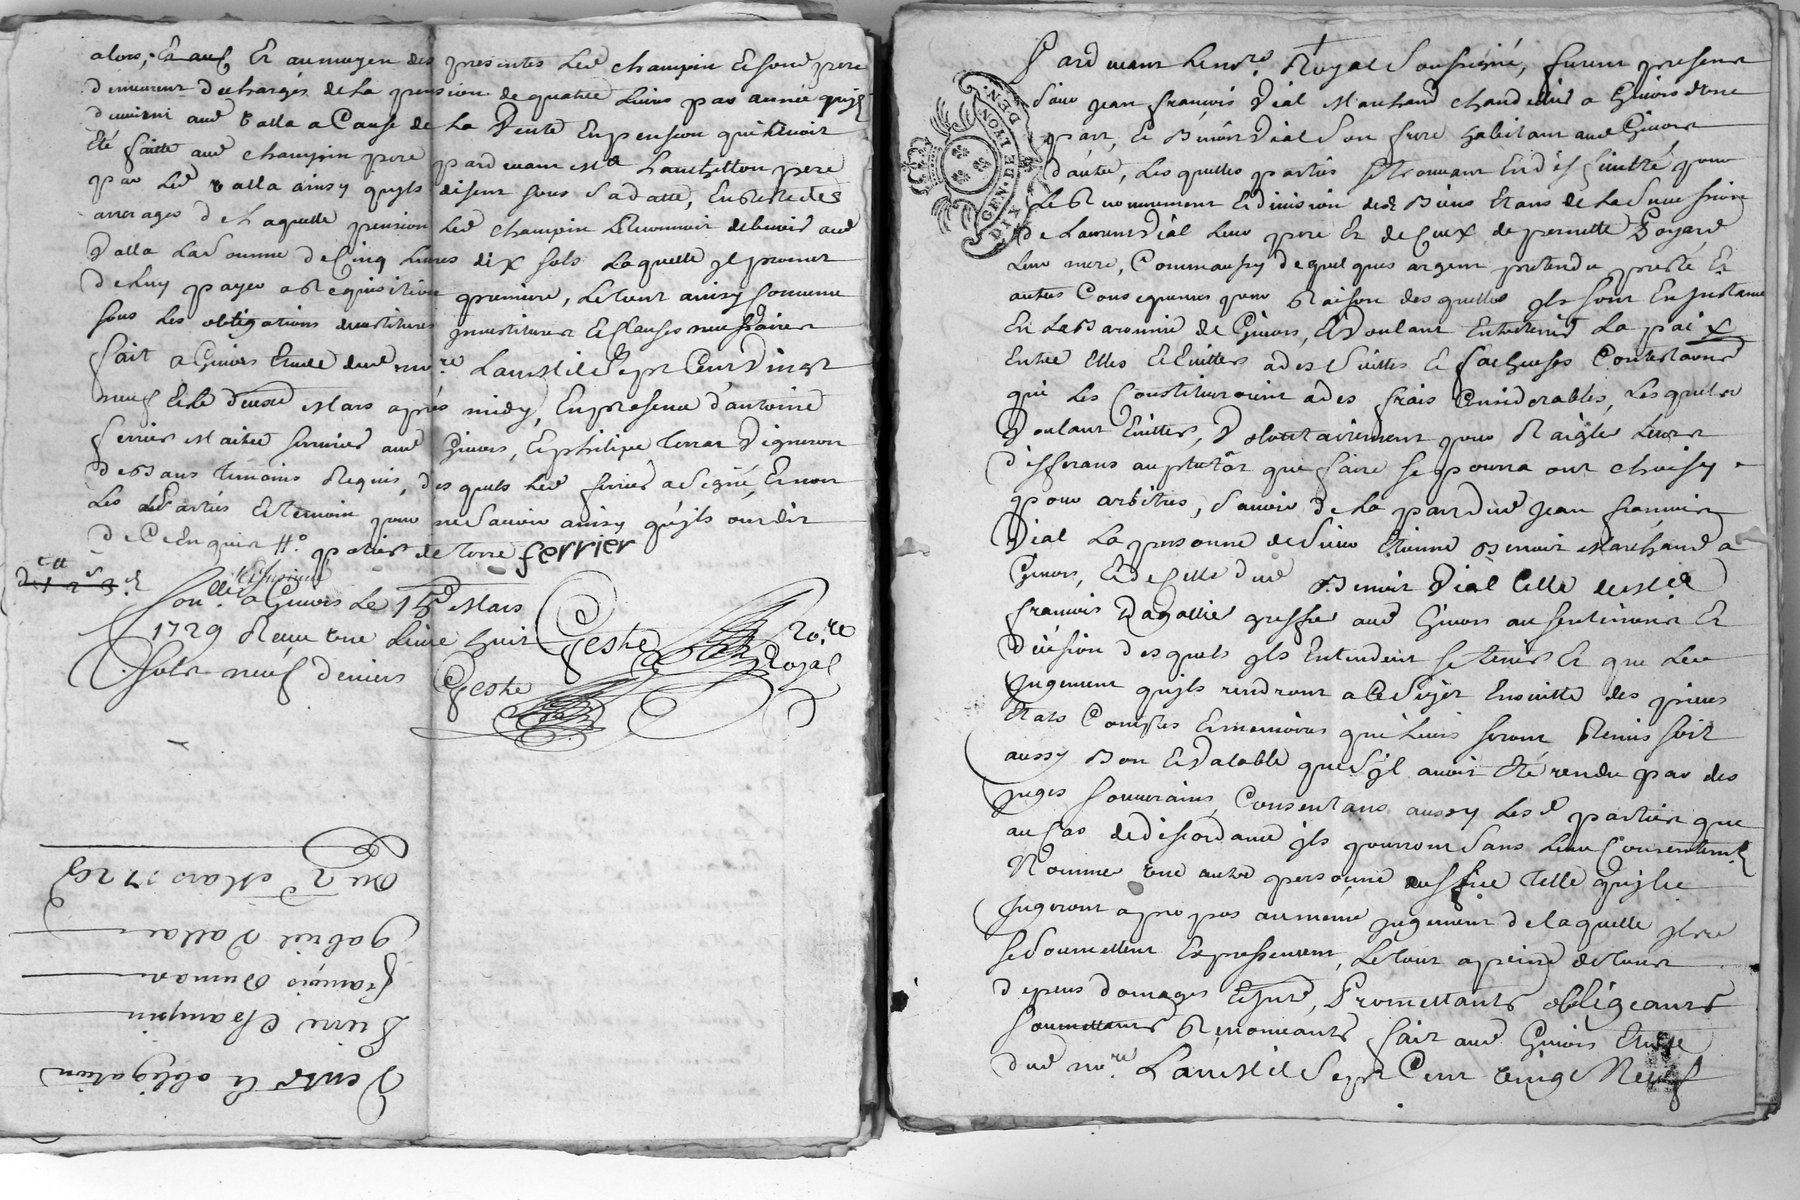 alors, Et au moyen des presentes Led champin Et son pere
demeurent decharges de la pension de quatre Livres par année qu'jls
devoient aud valla a Cause de La Vente En pension qui Luy avoit
Eté faitte aud champin pere pardevant Me Lanchetton pere
par Led valla ainsy qu'jls disent sous Sa datte, En Reste des
arrerages de Laquelle pension Led champin Reconnoit debvoir aud
Valla La Somme de Cinq Livres dix sols Laquelle jl promet
de Luy payer a Requisition premiere, Le tout ainsy Convenu
sous Les obligations investitures Et Clauses necessaires
fait a Givors Etude dud nore L'an Mil Sept Cent Vingt
neuf Et le deuxe Mars après midy, En presence d'antoine
ferrier Maitre serrurier aud Givors, Et philipe Terrat Vigneron
temoins Requis, desquels Led ferrier a Signé, Et non
Les parties Et temoin pour ne Savoir ainsy qu'jls ont dit
de Ce Enquis
ferrier
Con.lle a Givors Le 15 Mars
1729 Reçu une Livre huit
sols neuf deniers
Geste
Geste
No.re
Royal
Vente Et obligation
Pierre Champin
françois
gabriel Vallas
Du 2e Mars 1729
GEN. DE LYON
Pardevant Le nore Royal Soussigné, furent presents
Sieur Jean françois Vial Marchand chandellier a Givors d'une
part, Et Benoit Vial Son frere habitant aud Givors
d'autre, Lesquelles parties Se trouvant En difficulté pour
Le Et division des Biens Etans de La Succession
de Laurent Vial Leur pere Et de Ceux de pernette Goyard
Leur mere, Comm'aussy de quelques argent pretendu presté Et
autres Consequences pour Raison desquelles jls sont En jnstance
En La Baronnie de Givors, Et Voulant Entretenir La paix
Entre Elles Et Eviter a des Suittes Et facheuses Contestations
qui Les Constitueroient a des frais Considerables, Lesquelles
Voulant Eviter, Volontairement pour Raigler Leurs
differans au plutôt que faire se pourra ont choisy
pour arbitres, Savoir de La part dud Jean françois
Vial La personne de Sieur Etienne Benoit Marchand a
Givors, Et de Celle dud Benoit Vial Celle de Me
françois Dagallier greffier aud Givors au sentiment Et
décision desquels jls Entendent se tenir Et que Leur
jugement qu'jls rendront a Ce Sujet Ensuitte des pieces
Etats Comptes Et memoires qui Leurs seront Remis soit
aussy Bon Et Valable que S'jl avoit Eté rendu par des
juges souverains, Consentans aussy Lesd parties que
au Cas de discordance jls pourront Sans Leur Consentement
Nommer une autre personne telle qu'jls
jugeront a propos au même jugement de laquelle jls
se Soumettent Expressement, Le tout a peine de tous
depens domages Et , Promettants obligeants
soumettants Renonceants fait aud Givors Etude
dud nore L'an Mil Sept Cent vingt Neuf